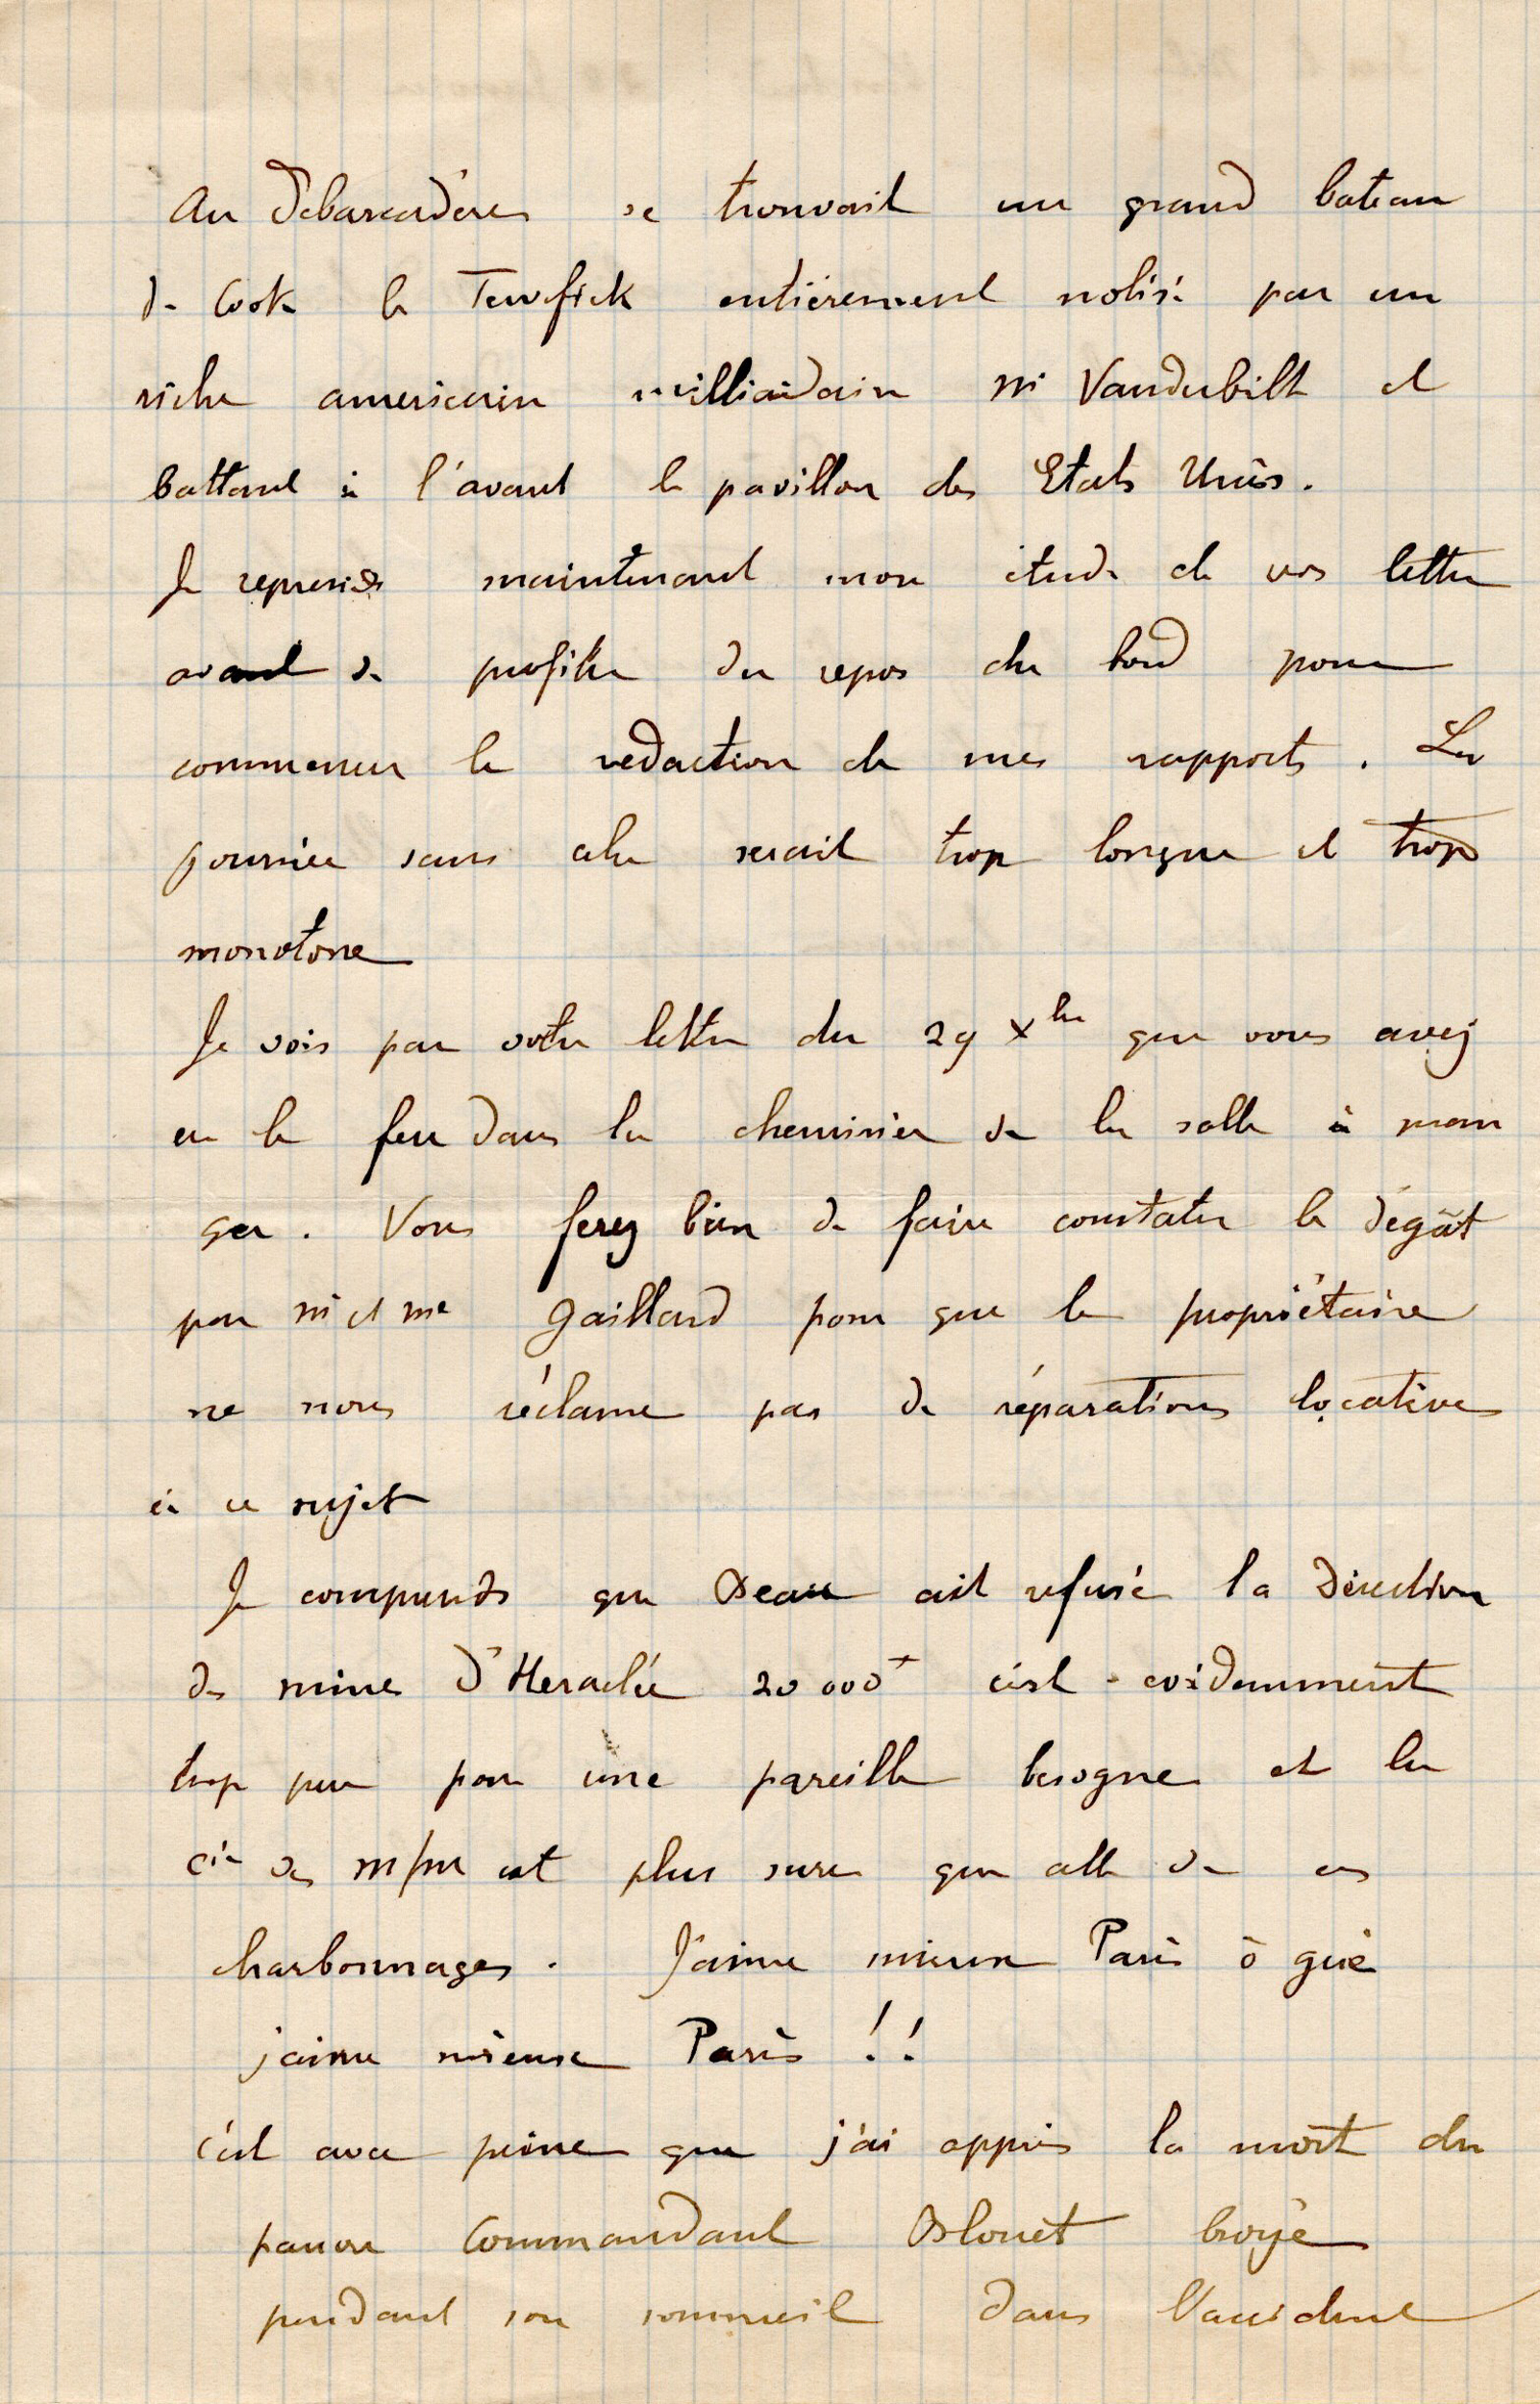 Au débarcadère se trouvait un grand bateau
de Cook le Tewfick entièrement nolisé par un
riche americain milliardaire Mr Vanderbilt et
battant à l'avant le pavillon des Etats Unis.
Je reprends maintenant mon étude de vos lettres
avant de profiter du repos du bord pour
commencer la redaction de mes rapports. La
journée sans cela serait trop longue et trop
monotone
Je vois par votre lettre du 29 Xbre que vous avez
eu le feu dans la cheminée de la salle à man
ger. Vous ferez bien de faire constater le dégât
par Mr et Me Gaillard pour que le propriétaire
ne nous réclame pas de réparations locatives
à ce sujet
Je comprends que ait refusé la Direction
des mines d'Heraclée 20 000f c'est évidemment
trop peu pour une pareille besogne et la
Cie des est plus sure que celle de ces
charbonnages. J'aime mieux Paris ô gué
j'aime mieux Paris !!
C'est avec peine que j'ai appris la mort du
pauvre Commandant broyé
pendant son sommeil dans l'accident